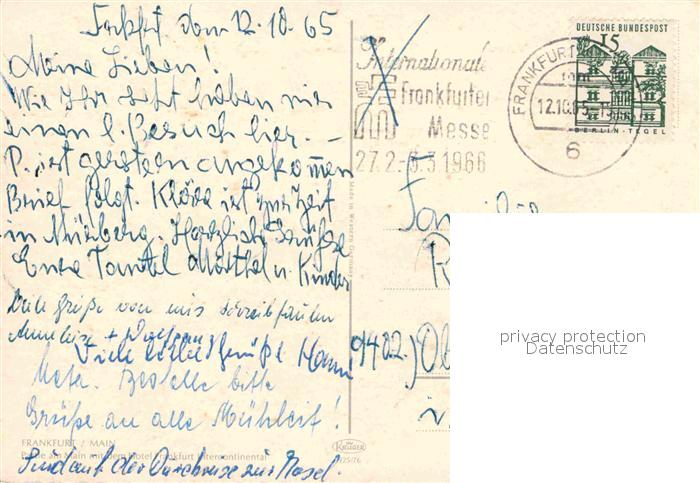 Frkft. dem 12.10.65
Meine Lieben!
Wie Ihr seht haben wir
einen l. Besuch hier. –
P. ist gestern angekommen
Brief folgt. Kläre ist zur Zeit
in Nürnberg. Herzliche Grüße
Eure Tante u. Kinder
Viele Grüße von uns schreibfaulen
Anneliese +
Viele Grüße
Bestelle bitte
Grüße an alle Mühleit!
Sind auf der Durchreise zur Mosel.
FRANKFURT / MAIN
am Main mit dem Hotel Frankfurt Intercontinental
Internationale
Frankfurter
Messe
27.2.-3.3.1966
FRANKFURT
12.10.65
6
DEUTSCHE BUNDESPOST
15
BERLIN-TEGEL
Made in Western Germany
KRÜGER
925/76
Familie
(9402.) Ob
privacy protection
Datenschutz